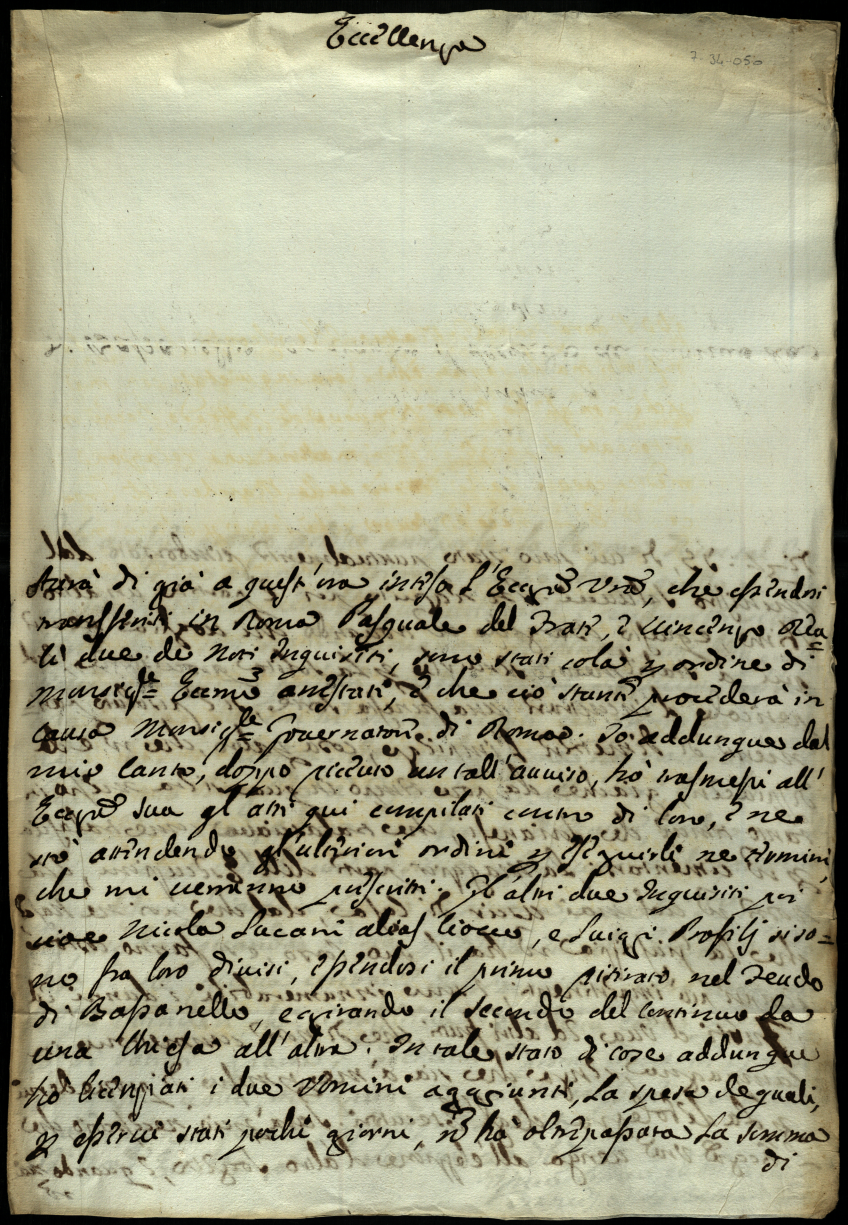 Eccellenza
7-34-050
Aurà di già a quest'ora intesa l'Ecc.za Vra, che essendosi
transferiti in Roma Pasquale del Frate, e Vincenzo
li due de Noti Inquisiti, sono stati colà p ordine di
Monsig.re arrestati, e che ciò stante procederà in
causa Monsig.re Governatore di Roma. Io addunque dal
mio canto, doppo un tall'avviso, hò trasmessi all'
Ecc.za Sua gl'atti qui compilati contro di loro, e ne
stò attendendo gl'ulteriori ordini p eseguirli ne termini,
che mi verranno prescritti. Gl'altri due Inquisiti poi
cioè Nicola Lucani alias Ciocco, e Luigi Profilj si so=
no fra loro divisi, essendosi il primo ritirato nel Feudo
di Bassanello, e girando il secondo del continuo da
una Chiesa all'altra. In tale stato di cose addunque
hò licenziati i due Uomini aggiunti, la spesa de quali,
p esservi stati pochi giorni, nō hà oltrepassata la somma
di